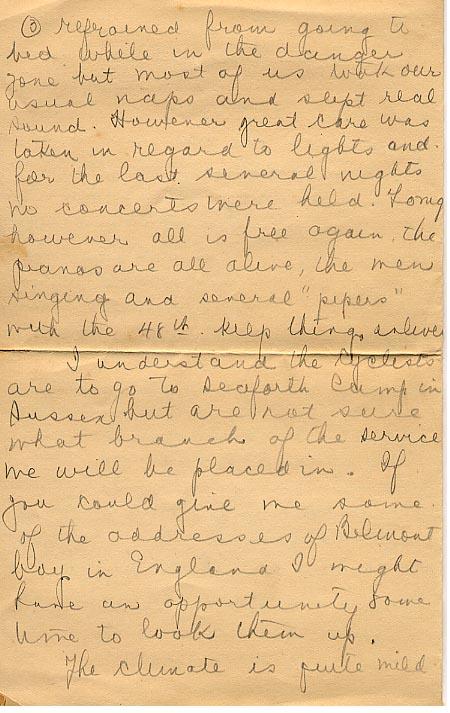 ③ refrained from going to
bed while in the danger
zone but most of us took our
usual naps and slept real
sound. However great care was
taken in regard to lights and
for the last several nights
no concerts were held. Tonight
however all is free again, the
pianos are all alive, the men
singing and several "pipers"
with the 48th keep things enliven
I understand the Cyclists
are to go to Seaforth Camp in
Sussex but are not sure
what branch of the service
we will be placed in. If
you could give me some
of the addresses of Belmont
boy in England I might
have an opportunity some
time to look them up.
The climate is quite mild